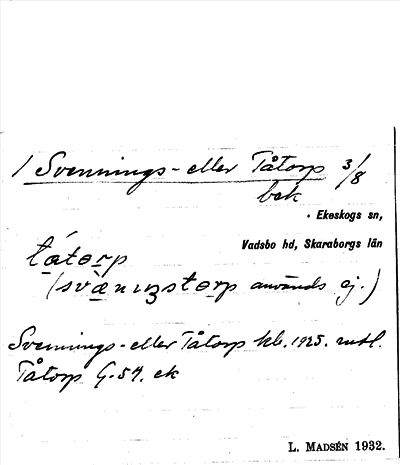 1 Svennings- eller Tåtorp 3/8
bek
Ekeskogs sn,
Vadsbo hd, Skaraborgs län
tátorp
(svànıŋstorp används ej.)
Svennings- eller Tåtorp kb. 1925. mtl.
Tåtorp G.57. ek
L. MADSÉN 1932.